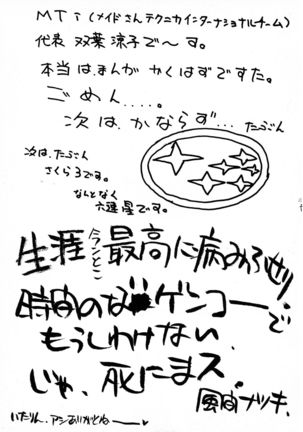 MTi (メイドさんテクニカインターナショナルチーム)
代表 双葉涼子で〜す。
本当は、まんが かくはずですた。
ごめん....。
次は、かならず… たぶん
次は、たぶん
さくら3です。
なんとなく
六連星です。
生涯 今んとこ 最高に病みぃ
時間のな ゲンコーで
もうしわけない、
じゃ、死にまス。
風間ナツキ.
いたりん、アシありがとねー